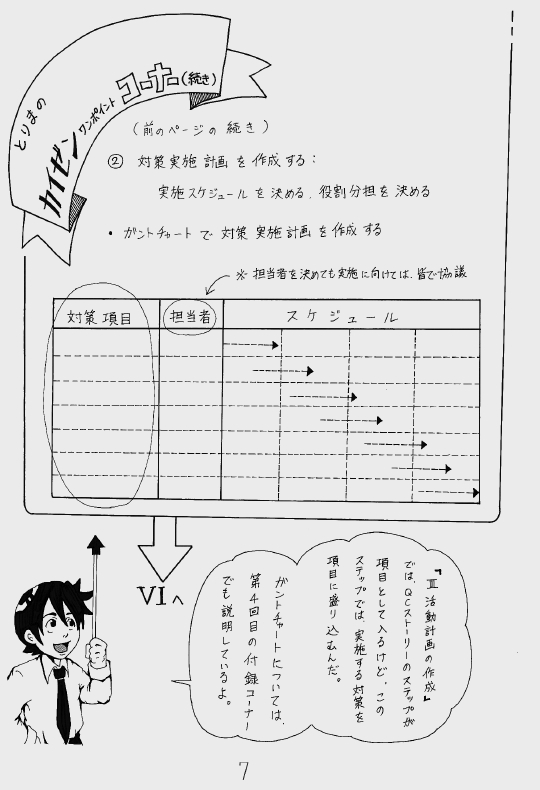 とりまの
カイゼン ワンポイント コーナー(続き)
(前のページの続き)
② 対策実施計画を作成する:
実施スケジュールを決める、役割分担を決める
・ ガントチャートで対策実施計画を作成する
※ 担当者を決めても実施に向けては、皆で協議
対策項目 担当者 スケジュール
VIへ
『Ⅲ活動計画の作成』
では、QCストーリーのステップが
項目として入るけど、この
ステップでは、実施する対策を
項目に盛り込むんだ。
ガントチャートについては、
第4回目の付録コーナー
でも説明しているよ。
7